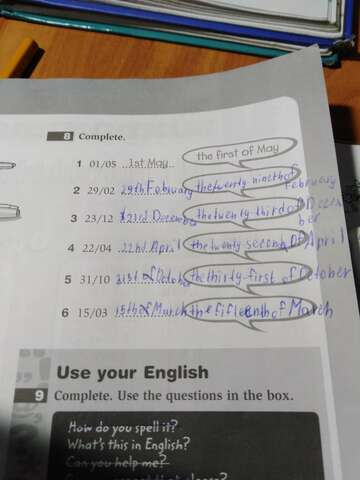 8 Complete.
1 01/05 1st May the first of May
2 29/02 29th February the twenty ninth of February
3 23/12 23rd December the twenty third of December
4 22/04 22nd April the twenty second of April
5 31/10 31st of October the thirty-first of October
6 15/03 15th of March the fifteenth of March
Use your English
9 Complete. Use the questions in the box.
How do you spell it?
What's this in English?
Can you help me?